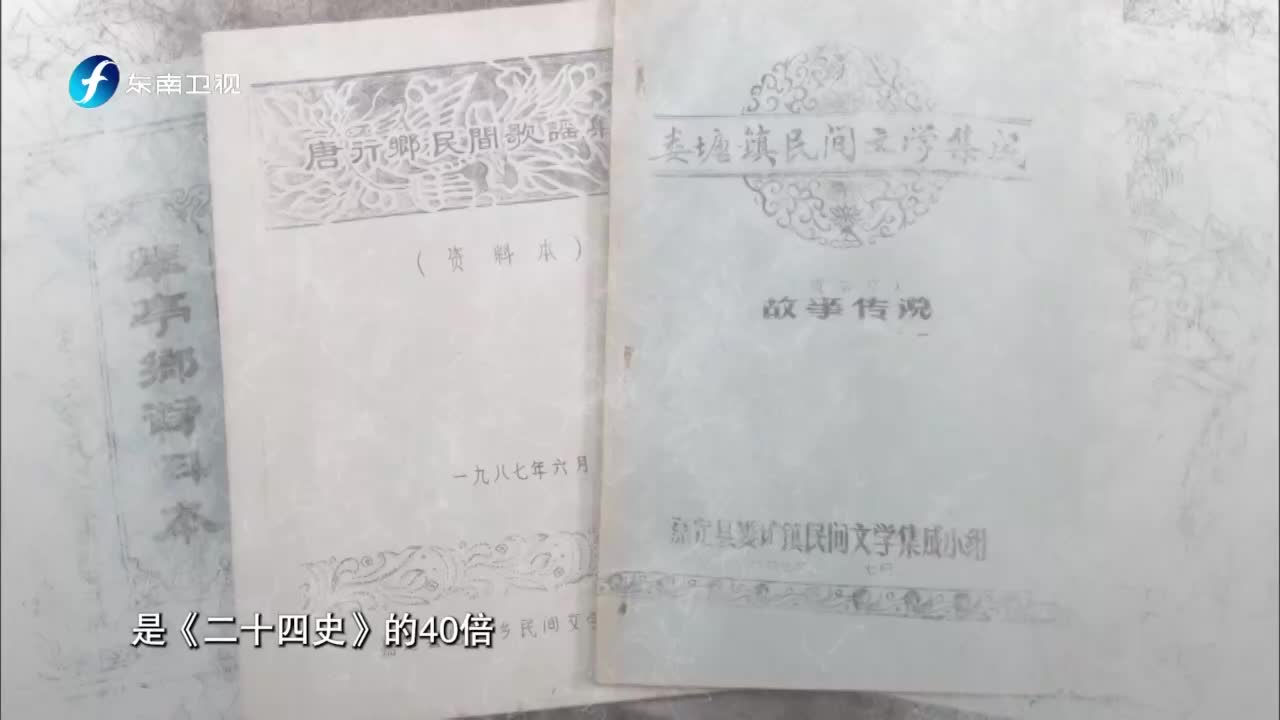 东南卫视
唐行鄉民間歌謡集
（资料本）
一九八七年六月
乡民间文学
娄塘镇民间文学集成
故事传说
嘉定县娄塘镇民间文学集成小组
七月
亭鄉资料本
是《二十四史》的40倍